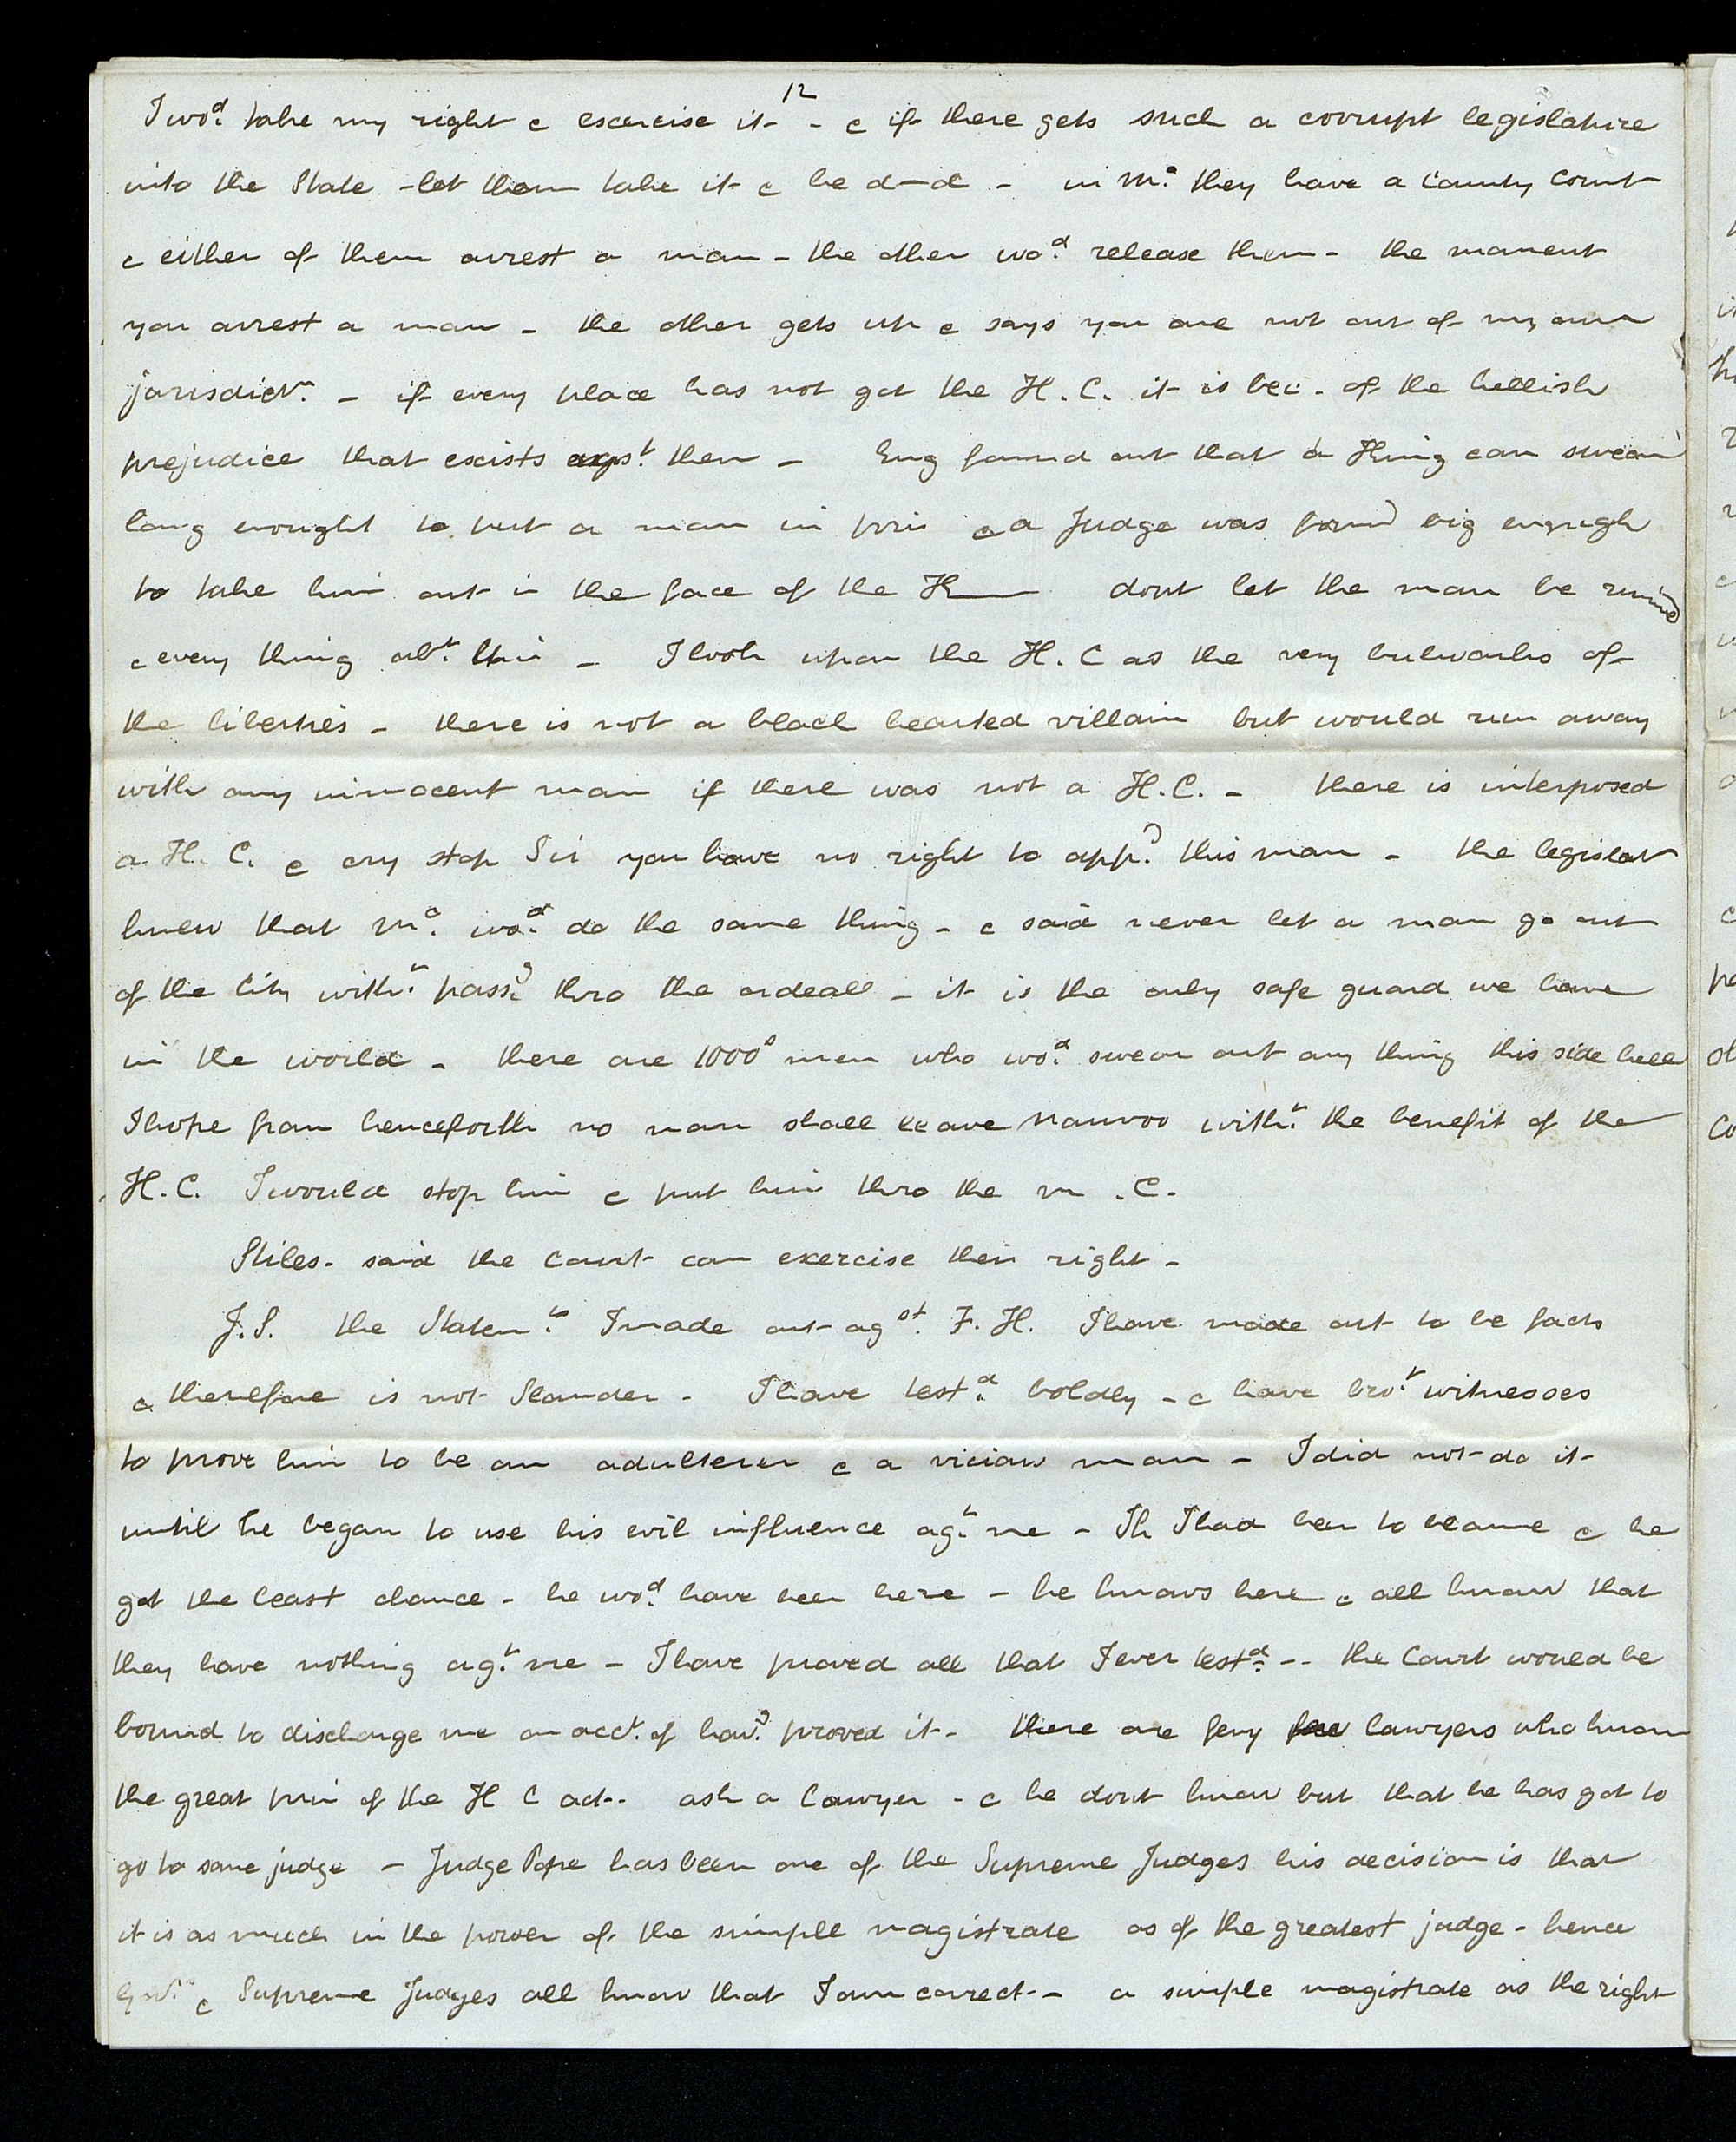 12
I wod. take my right & exercise it - & if there gets such a corrupt legislature
into the State - let them take it & be d-d - in Mo. they have a County Court
& either of them arrest a man - the other wod. release them - the moment
you arrest a man - the other gets up & says you are not out of my own
jurisdictn. - if every place has not got the H.C. it is bec. of the hellish
prejudice that exists agst. them - Eng found out that a King can swear
long enought to put a man in pris & a Judge was found big enough
to take him out in the face of the K—— dont let the man be ruined
& every thing abt. him - I look upon the H.C as the very bulwarks of
the liberties - there is not a black hearted villain but would run away
with any innocent man if there was not a H.C. - there is interposed
a H. C. & cry stop Sir you have no right to appd. this man - the legislat
knew that Mo. wod. do the same thing - & said never let a man go out
of the City witht. passg. thro the ordeall - it is the only safe guard we have
in the world - there are 1000s men who wod. swear out any thing this side hell
I hope from henceforth no man shall leave Nauvoo witht. the benefit of the
H.C. I would stop him & put him thro the M.C.
Stiles - said the Court can exercise their right -
J.S. the Statemts. I made out agst. F.H. I have made out to be facts
& therefore is not Slander - I have testd. boldly - & have brot. witnesses
to prove him to be an adulterer & a vicious man - I did not do it -
until he began to use his evil influence agt. me - If I had been to blame & he
got the least chance - he wod. have been here - he knows here & all know that
they have nothing agt. me - I have proved all that I ever testd. -- the Court would be
bound to discharge me on acct. of havg. proved it - there are fewy few lawyers who know
the great prin of the H C act - ask a Lawyer - & he dont know but that he has got to
go to some judge - Judge Pope has been one of the Supreme Judges his decision is that
it is as much in the power of the simple magistrate as of the greatest judge - hence
Govrs. & Supreme Judges all know that I am correct - a simple magistrate as the right